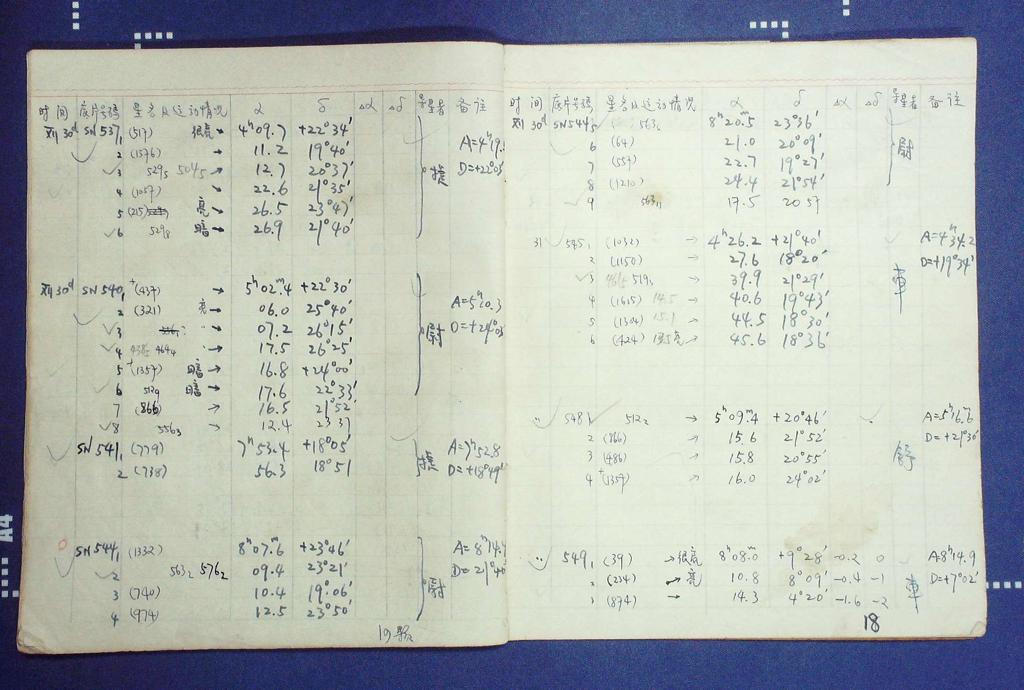 时间 底片号码 星名及运动情况 α δ Δα Δδ 量星者 备注
Ⅻ 30ᵈ SN 537₁ (517) 很亮 → 4ʰ09.7 +22°34′
2 (1576) → 11.2 19°40′ A=4ʰ19.
3 529₅ 504₅ → 12.7 20°37′ D=+22°05
4 (1057) → 22.6 21°35′
5 (215) 亮 → 26.5 23°47′
6 529₈ 暗 → 26.9 21°40′
Ⅻ 30ᵈ SN 540₁ +(437) → 5ʰ02ᵐ.4 +22°30′
2 (321) 亮 → 06.0 25°40′ A=5ʰ10.3
3 → 07.2 26°15′ 尉 D=+24°05
4 464₄ → 17.5 26°25′
5 +(1357) 暗 → 16.8 +24°00′
6 512₉ 暗 → 17.6 22°33′
7 (866) → 16.5 21°52′
8 556₃ → 12.4 23 37
SN 541₁ (779) 7ʰ53.4 +18°05′ A=7ʰ52.8
2 (738) 56.3 18°51 D=+18°49′
SN 544₁ (1332) 8ʰ07.6 +23°46′ A=8ʰ14.9
2 563₂ 576₂ 09.4 23°21′ 尉 D=21°40′
3 (740) 10.4 19°06′
4 (974) 12.5 23°50′
19颗
时间 底片号码 星名及运动情况 α δ Δα Δδ 量星者 备注
Ⅻ 30ᵈ SN 544₅ 563₁ 8ʰ20ᵐ.5 23°36′
6 (64) 21.0 20°09′ 尉
7 (557) 22.7 19°27′
8 (1210) 24.4 21°54′
9 563₁₁ 17.5 20 57
31 545₁ (1032) → 4ʰ26.2 +21°40′ A=4ʰ34.2
2 (1150) → 27.6 18°20′ D=+19°34′
3 519₁ → 39.9 21°29′ 車
4 (1615) 14.5 → 40.6 19°43′
5 (1304) 15.1 → 44.5 18°30′
6 (424) 13.5亮 → 45.6 18°36′
〃 548₁ 512₂ → 5ʰ09ᵐ.4 +20°46′ A=5ʰ16.6
2 (866) → 15.6 21°52′ D=+21°30′
3 (486) → 15.8 20°55′
4 +(1357) → 16.0 24°02′
〃 549₁ (39) →很亮 8ʰ08ᵐ.0 +9°28′ -0.2 0 A=8ʰ14.9
2 (234) →亮 10.8 8°09′ -0.4 -1 車 D=+7°02′
3 (894) → 14.3 4°20′ -1.6 -2
18